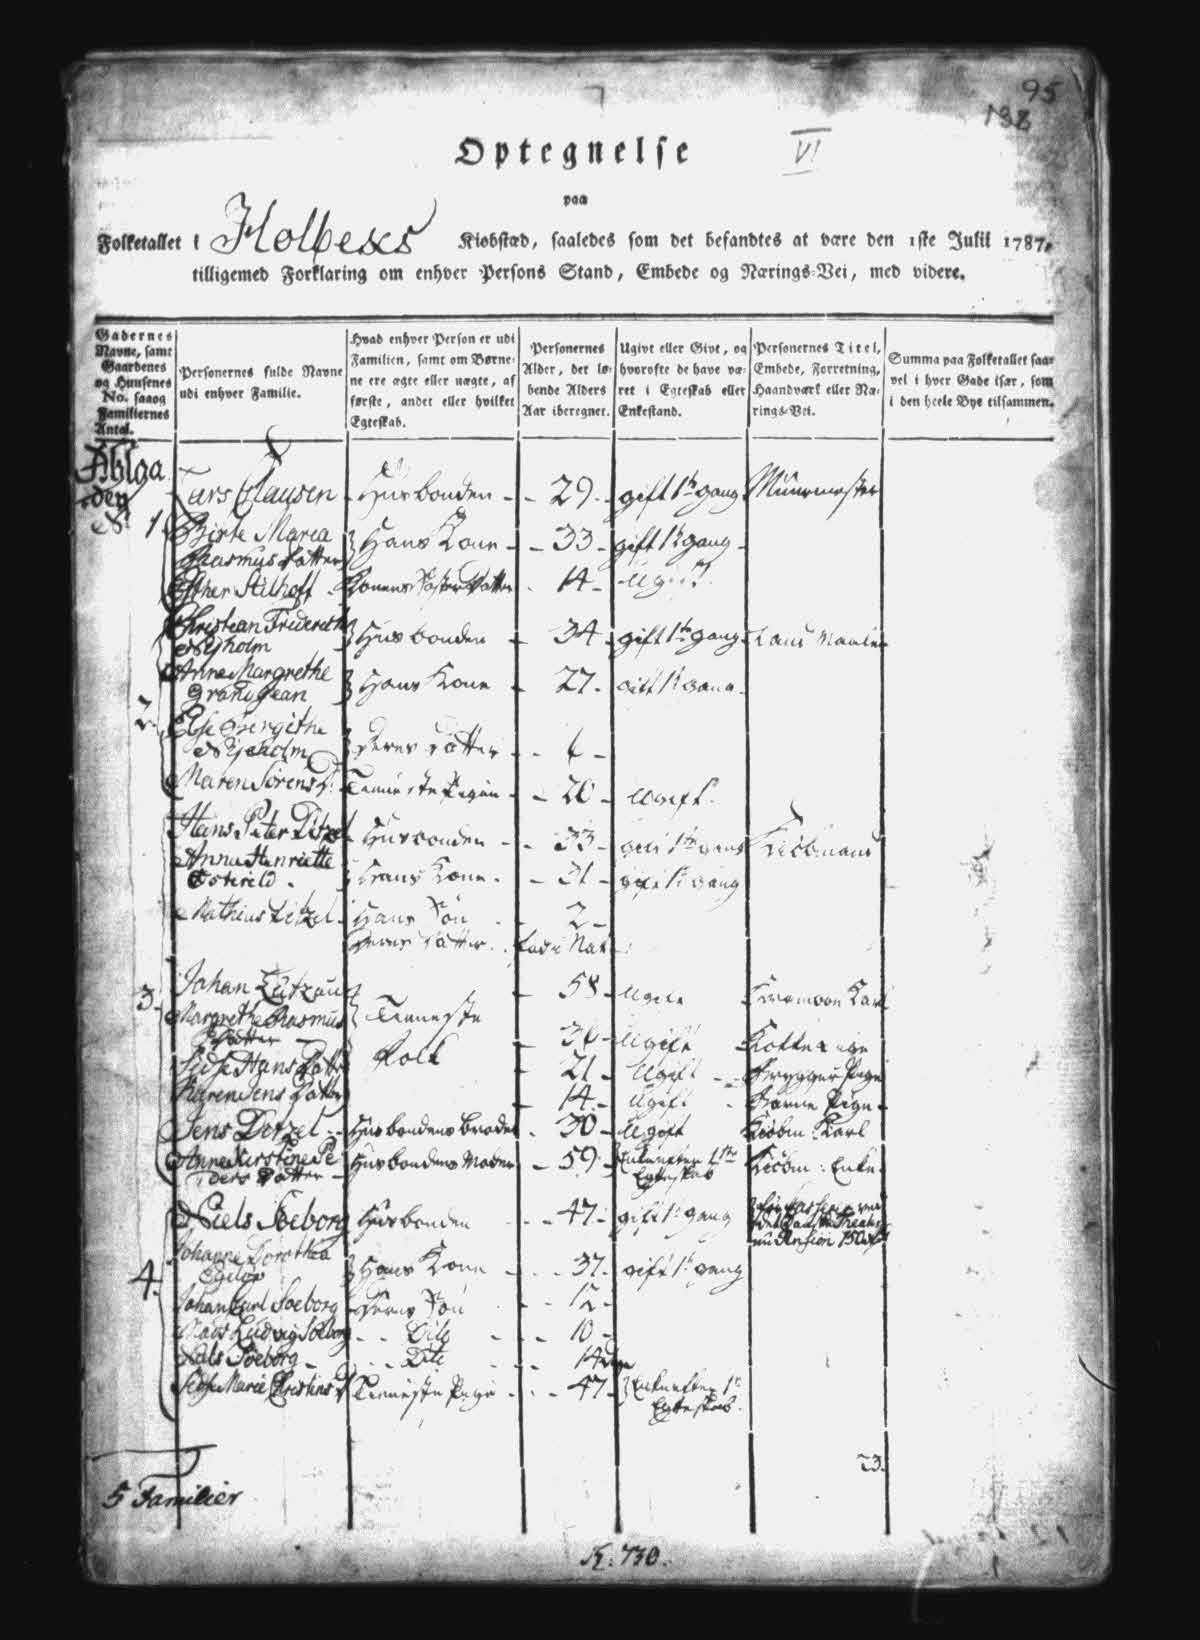 95
138
Optegnelse
VI
paa
Folketallet i Holbeks Kiøbstæd, saaledes som det befandtes at være den 1ste Julii 1787,
tilligemed Forklaring om enhver Persons Stand, Embede og Nærings-Vei, med videre.
Gadernes Navne, samt Gaardenes og Huusenes No. saaog Familiernes Antal.
Personernes fulde Navne udi enhver Familie.
Hvad enhver Person er udi Familien, samt om Børnene ere ægte eller uægte, af første, andet eller hvilket Egteskab.
Personernes Alder, det løbende Alders Aar iberegnet.
Ugivt eller Givt, og hvorofte de have været i Egteskab eller Enkestand.
Personernes Titel, Embede, Forretning, Haandværk eller Nærings-Vei.
Summa paa Folketallet saavel i hver Gade især, som i den heele Bye tilsammen.
Ahlga
den
Lars Clausen Husbonden 29 gift 1te gang Muurmester
1 Birte Maria
Rasmus Datter Hans Kone 33 gift 1te gang
Esther Stilhoff Konens Søster Datter 14 Ugift
Christean Friderich
Nyholm Husbonden 34 gift 1te gang
Anne Margrethe
Grandjean Hans Kone 27 gift 1te gang
2 Else Bergithe
Nyeholm Deres Datter 6
Maren Sørens D. Tieneste Pigen 20 Ugift
Hans Peter Ditzel Husbonden 33 gift 1te gang Kiøbmand
Anna Henriette
Hans Kone 31 gift 1te gang
Mathias Ditzel Hans Søn 2
Deres Datter
3 Johan Lutzau 58 Ugift Karl
Margrethe Rasmus
Datter Tieneste 36 Ugift
Sidse Hans Datter Folk 21 Ugift Brygger Pige
Karen Jens Datter 14 Ugift Barne Pige
Jens Ditzel Husbondens Broder 30 Ugift Kiøbm: Karl
Anne Kirstine Pe
ders Datter Husbondens Moder 59 Enke efter 1te
Egteskab Kiøbm: Enke
Niels Søeborg Husbonden 47 gift 1te gang
Johanne Dorothea
Hans Kone 37 gift 1te gang
4 Johan Carl Søeborg Deres Søn 12
Mads Ludvig Søeborg Dito 10
Niels Søeborg Dito 14 dage
Sidse Marie Christens D Tieneste Pige 47 Enke efter 1te
Egteskab
23.
5 Familier
K. 730.